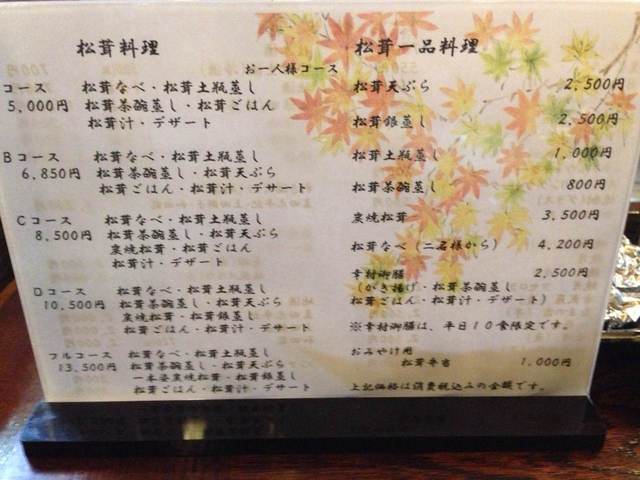 松茸料理
お一人様コース
コース 松茸なべ・松茸土瓶蒸し
5,000円 松茸茶碗蒸し・松茸ごはん
松茸汁・デザート
Bコース 松茸なべ・松茸土瓶蒸し
6,850円 松茸茶碗蒸し・松茸天ぷら
松茸ごはん・松茸汁・デザート
Cコース 松茸なべ・松茸土瓶蒸し
8,500円 松茸茶碗蒸し・松茸天ぷら
炭焼松茸・松茸ごはん
松茸汁・デザート
Dコース 松茸なべ・松茸土瓶蒸し
10,500円 松茸茶碗蒸し・松茸天ぷら
炭焼松茸・松茸銀蒸し
松茸ごはん・松茸汁・デザート
フルコース 松茸なべ・松茸土瓶蒸し
13,500円 松茸茶碗蒸し・松茸天ぷら
一本姿炭焼松茸・松茸銀蒸し
松茸ごはん・松茸汁・デザート
松茸一品料理
松茸天ぷら 2,500円
松茸銀蒸し 2,500円
松茸土瓶蒸し 1,000円
松茸茶碗蒸し 800円
炭焼松茸 3,500円
松茸なべ(二名様から) 4,200円
幸村御膳 2,500円
(かき揚げ・松茸茶碗蒸し
松茸ごはん・松茸汁・デザート)
※幸村御膳は、平日10食限定です。
おみやげ用
松茸弁当 1,000円
上記価格は消費税込みの金額です。